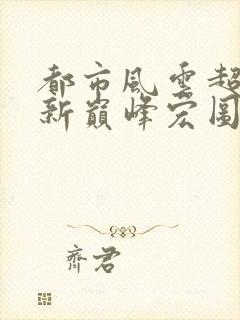 都市風雲超
新巔峰宏圖
齊君